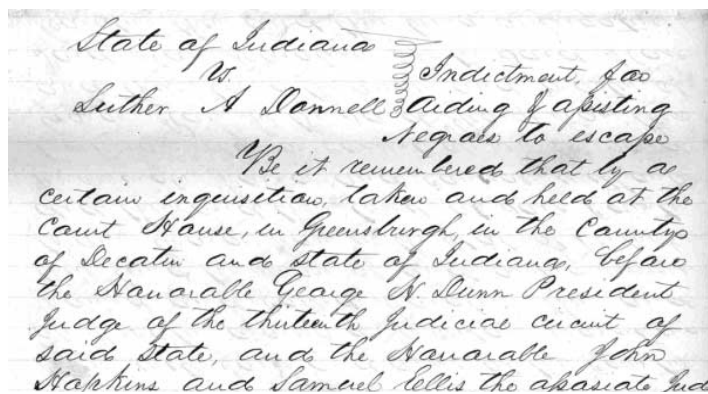 State of Indiana
vs.
Indictment, for
Luther A Donnell
Aiding & assisting
Negroes to escape
Be it remembered that by a
certain inquisition, taken and held at the
Court House, in Greensburgh, in the County
of Decatur and state of Indiana, before
the Honorable George H. Dunn President
Judge of the thirteenth Judicial circuit of
said state, and the Honorable John
Hopkins and Samuel Ellis the associate Jud